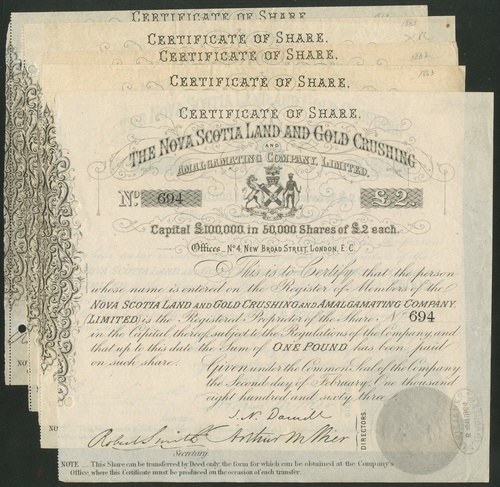 CERTIFICATE OF SHARE.
CERTIFICATE OF SHARE.
CERTIFICATE OF SHARE.
CERTIFICATE OF SHARE.
CERTIFICATE OF SHARE.
THE NOVA SCOTIA LAND AND GOLD CRUSHING
AND
AMALGAMATING COMPANY, LIMITED.
No. 694 £2
Capital £100,000 in 50,000 Shares of £2 each.
Offices_No 4, NEW BROAD STREET, LONDON, E.C.
This is to Certify that the person
whose name is entered on the Register of Members of the
NOVA SCOTIA LAND AND GOLD CRUSHING AND AMALGAMATING COMPANY,
(LIMITED) is the Registered Proprietor of the Share No 694
in the Capital thereof, subject to the Regulations of the Company and
that up to this date the Sum of ONE POUND has been paid
on such share.
Given under the Common Seal of the Company
the Second day of February, One thousand
eight hundred and sixty three
DIRECTORS.
Secretary
NOTE __ This Share can be transferred by Deed only, the form for which can be obtained at the Company's
Office, where this Certificate must be produced on the occasion of each transfer.